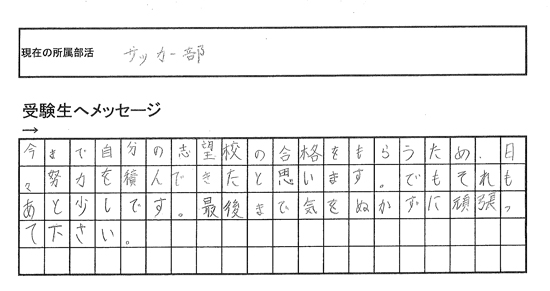 現在の所属部活 サッカー部
受験生へメッセージ
→
今まで自分の志望校の合格をもらうため、日
々努力を積んできたと思います。でもそれも
あと少しです。最後まで気をぬかずに頑張っ
て下さい。